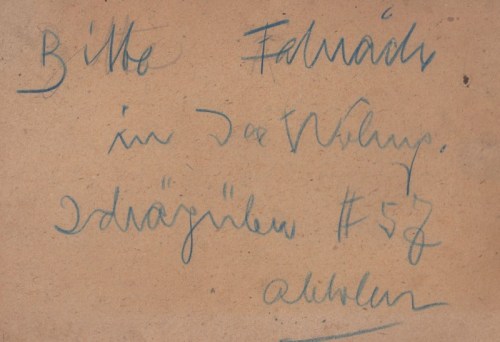 Bitte Fahrrad
in der Wohng.
Schrägüber # 57
abholen